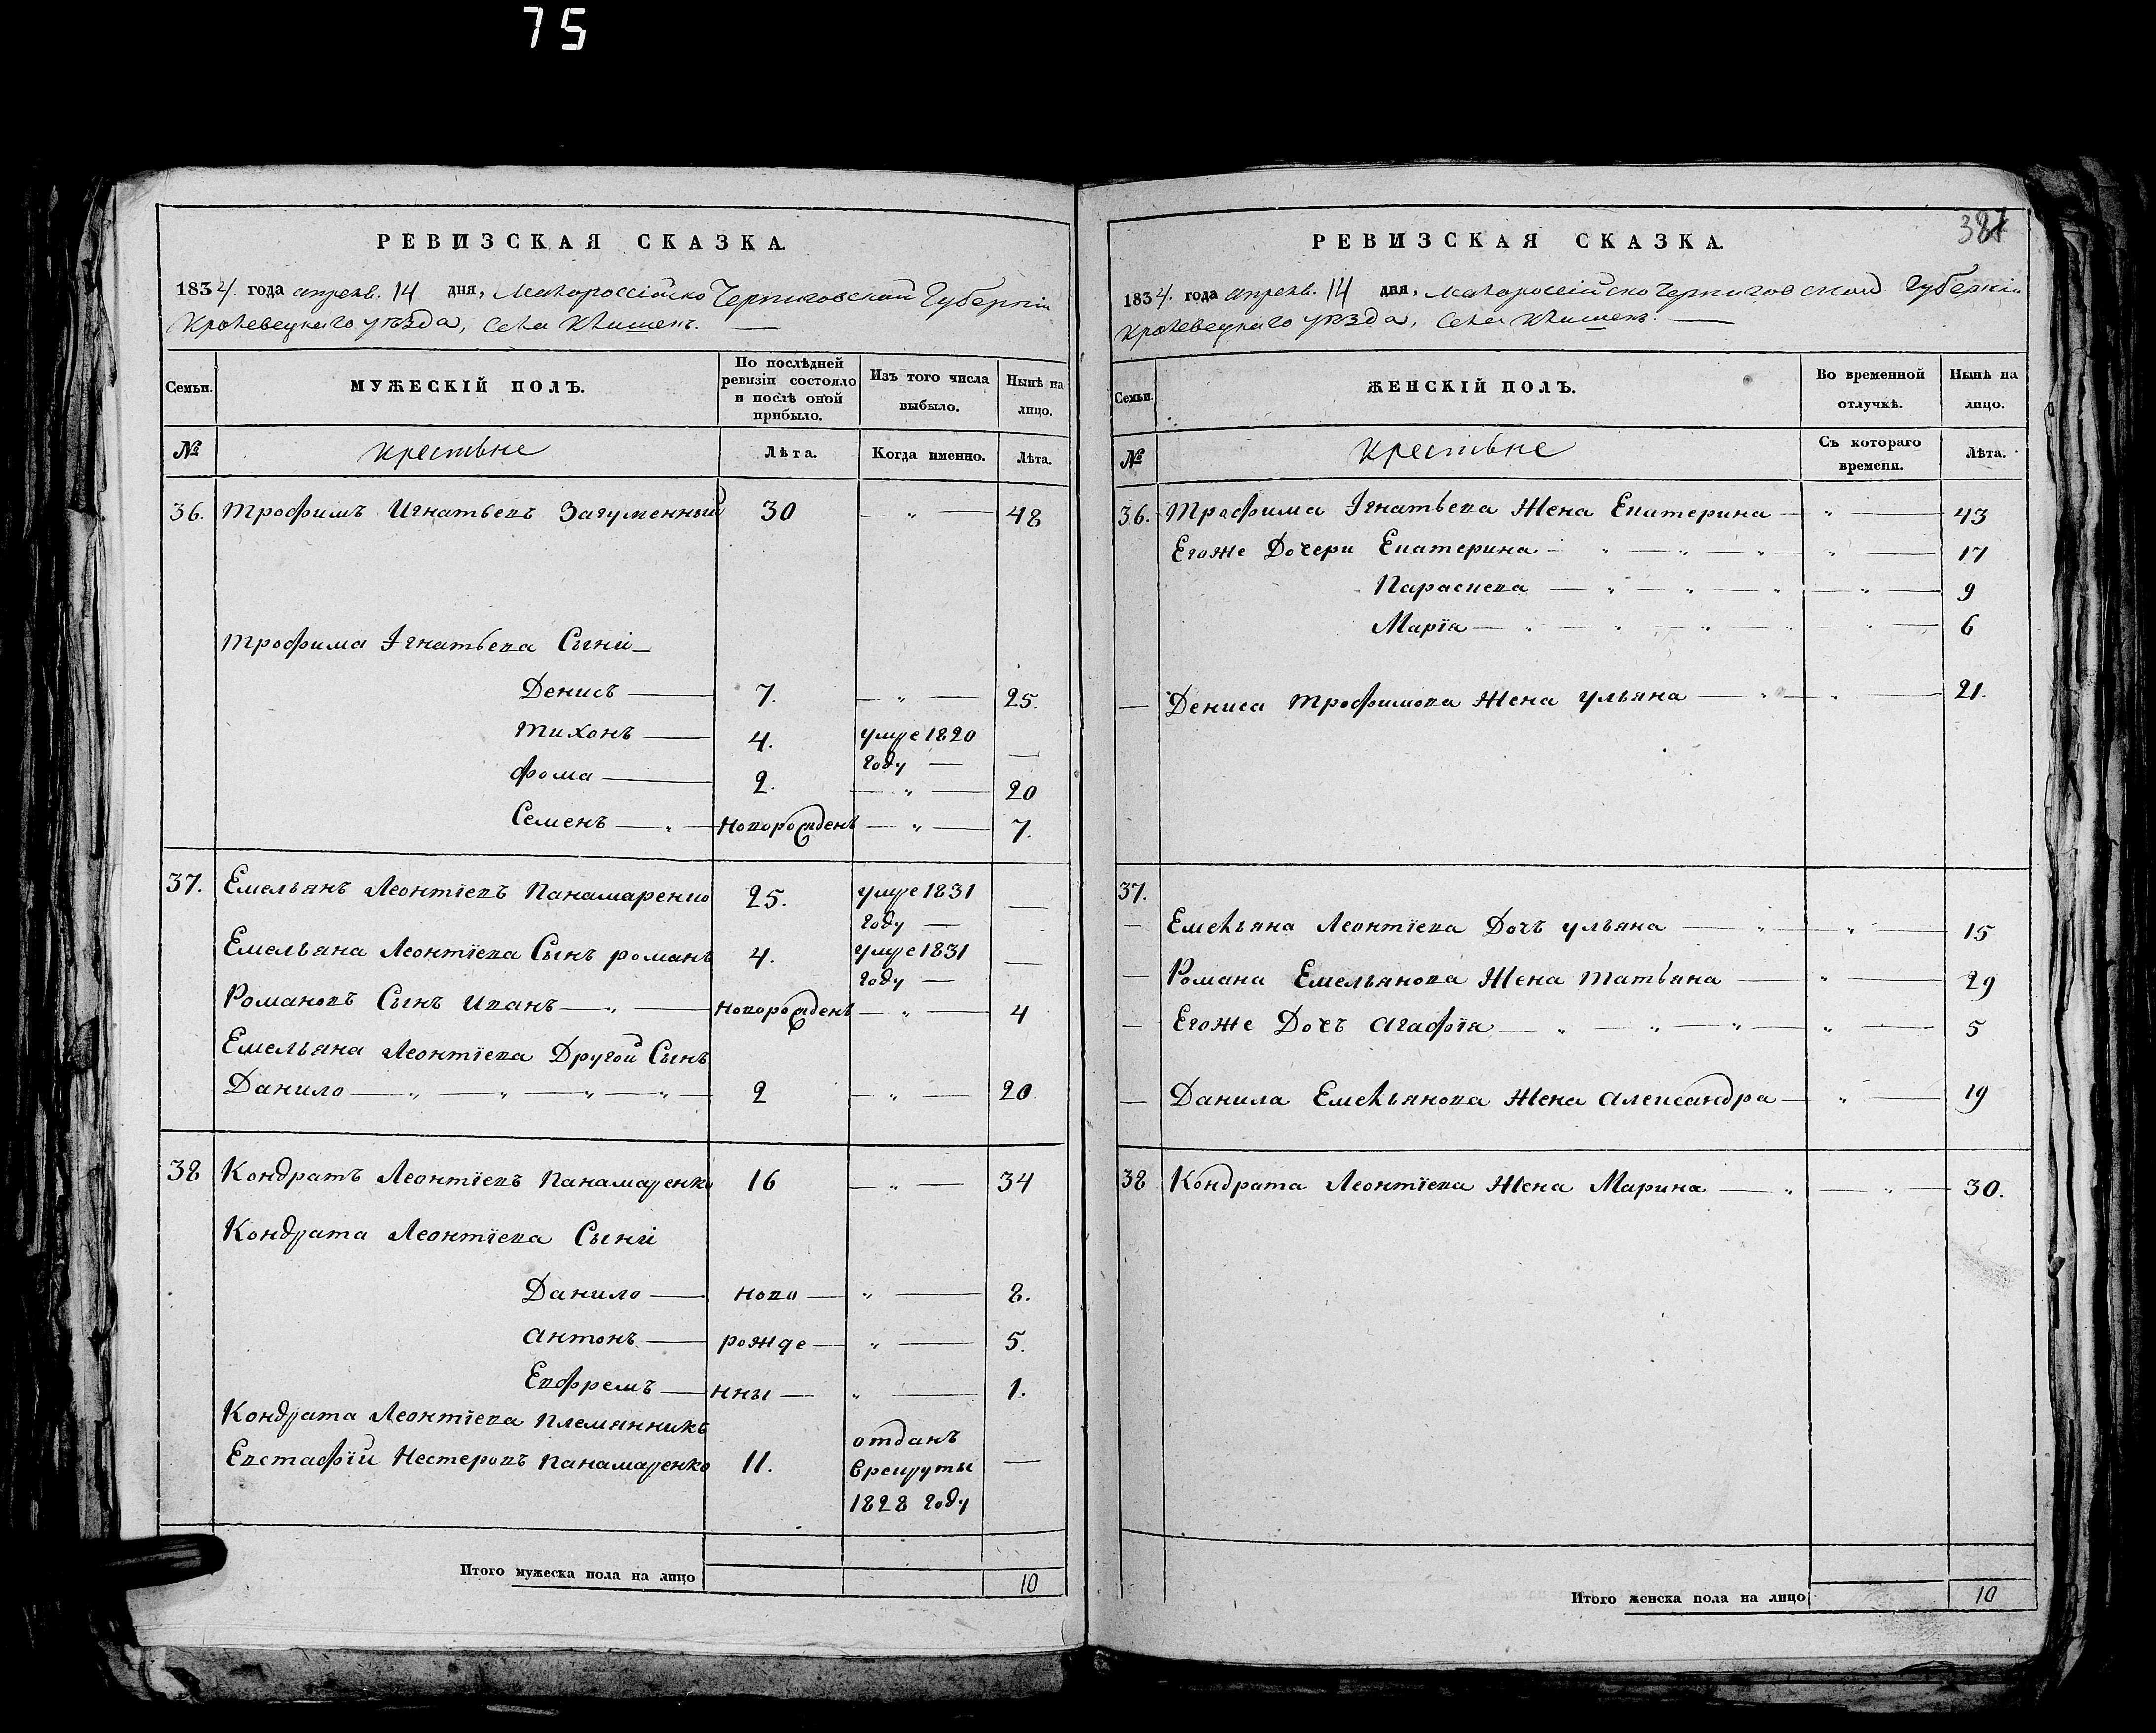 75
РЕВИЗСКАЯ СКАЗКА.
1834. года апрелѣ. 14 дня, Малороссійско Черниговской Губерніи
Кролевецкаго уѣзда, Села Клишекъ. —
Семьи.
МУЖЕСКІЙ ПОЛЪ.
По послѣдней ревизіи состояло и послѣ оной прибыло.
Изъ того числа выбыло.
Нынѣ на лицо.
№
крестьне
Лѣта.
Когда именно.
Лѣта.
36. Трофимъ Игнатьевъ Загуменный 30 — „ — 48
Трофима Ігнатьева Сыны —
Денисъ — 7. — „ — 25.
Тихонъ — 4. умре 1820 году — —
Фома — 2. — „ — 20
Семенъ — „ — Новорожденъ — „ — 7.
37. Емельянъ Леонтїевъ Панамаренко 25. умре 1831 году — —
Емельяна Леонтїева Сынъ романъ 4. умре 1831 году — —
Романовъ Сынъ Иванъ — „ — Новорожденъ — „ — 4
Емельяна Леонтїева Другой Сынъ
Данило — „ — „ — „ — „ — 2 — „ — 20
38 Кондратъ Леонтїевъ Панамаренко 16 — „ — 34
Кондрата Леонтїева Сыны
Данило — ново — „ — 8.
Антонъ — рожде — „ — 5.
Евфремъ — нны — „ — 1.
Кондрата Леонтїева племянникъ
Евстафїй Нестеровъ Панамаренко 11. отданъ
Врекруты —
1828 году
Итого мужеска пола на лицо 10
381
РЕВИЗСКАЯ СКАЗКА.
1834. года апрелѣ. 14 дня, Малороссійско Черниговской Губерніи
Кролевецкаго уѣзда, Села Клишекъ. —
Семьи.
ЖЕНСКІЙ ПОЛЪ.
Во временной отлучкѣ.
Нынѣ на лицо.
№
крестьне
Съ котораго времени.
Лѣта.
36. Трофима Ігнатьева Жена Екатерина — „ — 43
Егоже Дочери Екатерина — „ — „ — „ — „ — 17
Параскева — „ — „ — „ — „ — 9
Марїя — „ — „ — „ — „ — 6
— Дениса Трофимова Жена Ульяна — „ — „ — 21.
37.
— Емельяна Леонтїева Дочъ ульяна — „ — „ — 15
— Романа Емельянова Жена Татьяна — „ — 29
— Егоже Дочъ Агафїя — „ — „ — „ — „ — 5
— Данила Емельянова Жена Александра — „ — 19
38 Кондрата Леонтїева Жена Марина — „ — „ — 30.
Итого женска пола на лицо 10